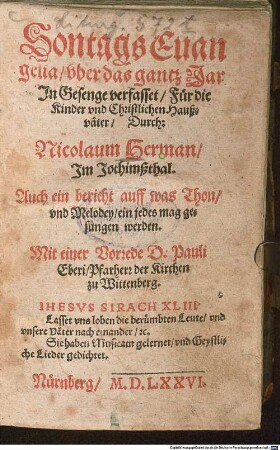 Sontags Euan
gelia/ vber das gantz Jar
In Gesenge verfasset/ Für die
Kinder vnd Christlichen Hauß-
väter/ Durch:
Nicolaum Herman/
Im Jochimßthal.
Auch ein bericht auff was Thon/
vnd Melodey/ ein jedes mag ge-
sungen werden.
Mit einer Vorrede D. Pauli
Eberi/ Pfarherr der Kirchen
zu Wittenberg.
IHESVS SIRACH XLIII.
Lasset vns loben die berümbten Leute/ vnd
vnsere Väter nach einander/ ꝛc.
Sie haben Musicam gelernet/ vnd Geystli-
che Lieder gedichtet.
Nürnberg/ M. D. LXXVI.